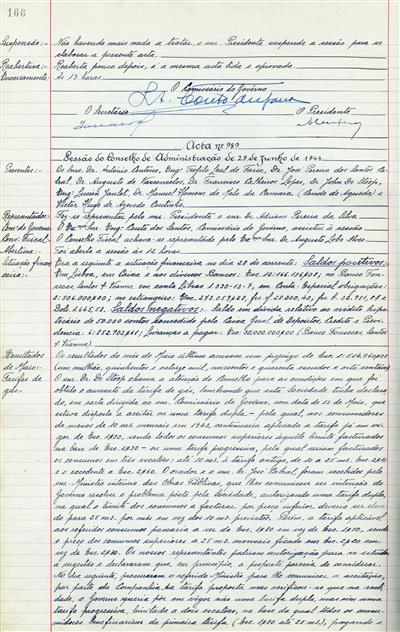 166
Suspensão:- Não havendo mais nada a tratar, o snr. Presidente suspende a sessão para se
elaborar a presente acta.
Reabertura:- Reaberta pouco depois, é a mesma acta lida e aprovada.
Encerramento:- Às 13 horas
O Comissário do Governo
O Secretário O Presidente
Acta nº 989
Sessão do Conselho de Administração de 29 de Junho de 1944
Presentes:- Os snrs. Dr. António Centeno, Engº Teófilo Leal de Faria, Dr. José Pereira dos Santos Ca-
bral, Dr. Augusto de Vasconcelos, Dr. Francisco Calheiros Lopes, Dr. John De Stoop,
Engº Lucien Jambel, Dr. Manuel Homem de Melo da Camara (Conde de Agueda) e
Victor Hugo de Azevedo Coutinho.
Fez-se representar pelo snr. Presidente o snr. Dr. Adriano Pereira da Silva
O Exmo Snr. Engº Couto dos Santos, Comissário do Governo, assistiu à sessão.
Cons. Fiscal:- O Conselho Fiscal achava-se representado pelo Exmo Snr. Dr. Augusto Lobo Alves.
Abertura:- Foi aberta a sessão às 12 horas.
Situação financeira:- Era a seguinte a situação financeira no dia 28 do corrente: Saldos positivos:-
Em Lisboa, em Caixa e nos diversos Bancos: Esc. no Banco Fon-
secas, Santos & Vianna em conta Libras em Conta Especial obrigações:
no estrangeiro:
Saldos negativos:- Saldo em dívida relativo ao crédito hipo-
tecário de contos concedido pela Caixa Geral de Depósitos, Crédito e Previ-
dência: Livranças a pagar: Esc. 30.000.000$00 (Banco Fonsecas Santos
& Vianna).
Resultados Os resultados do mês de Maio último acusam um prejuízo de Esc.
de Maio:- (um milhão, quinhentos e catorze mil, novecentos e quarenta escudos e oito centavos)
Tarifas de O snr. Dr. De Stoop chama a atenção do Conselho para as condições em que foi
gás:- obtido o aumento da tarifa de gás, lembrando que esta Sociedade tinha declara-
do, em carta dirigida ao snr. Comissário do Governo, com data de 13 de Maio, que
estava disposta a aceitar ou uma tarifa dupla - pela qual, aos consumidores
de menos de 10 m3. mensais em 1943, continuaria aplicada a tarifa já em vi-
gor de Esc. 1$80, sendo todos os consumos superiores àquele limite facturados
na base de Esc. 2$30 - ou uma tarifa progressiva, pela qual seriam facturados
os consumos em três escalões: até 10 m3. à tarifa antiga, de 10 a 25 m3. Esc.
e o excedente a Esc. O orador e o snr. Dr. José Cabral, foram recebidos pelo
snr. Ministro interino das Obras Públicas, que lhes comunicou ser intenção do
Governo resolver o problema posto pela Sociedade, autorizando uma tarifa dupla,
na qual o limite dos consumos a facturar, por preço inferior, deveria ser eleva-
do para 25 m3. por mês em vez dos 10 m3. previstos. Porém, a tarifa aplicável
aos referidos consumos passaria a ser de Esc. em vez de Esc. 1$80, sendo
o preço dos consumos superiores a 25 m3. mensais fixado em Esc.
em vez de Esc. Os nossos representantes pediram autorização para se estudar
a sugestão e declararam que, em princípio, a proposta parecia de considerar.
No dia seguinte, procuraram o referido Ministro para lhe comunicar a aceitação,
por parte da Companhia, da tarifa proposta, mas verificou-se que na reali-
dade, o Governo queria pôr em vigor não uma tarifa dupla, mas sim uma
tarifa progressiva, limitada a dois escalões, na base da qual todos os consu-
midores beneficiariam da primeira tarifa (Esc. até 25 m3), pagando o